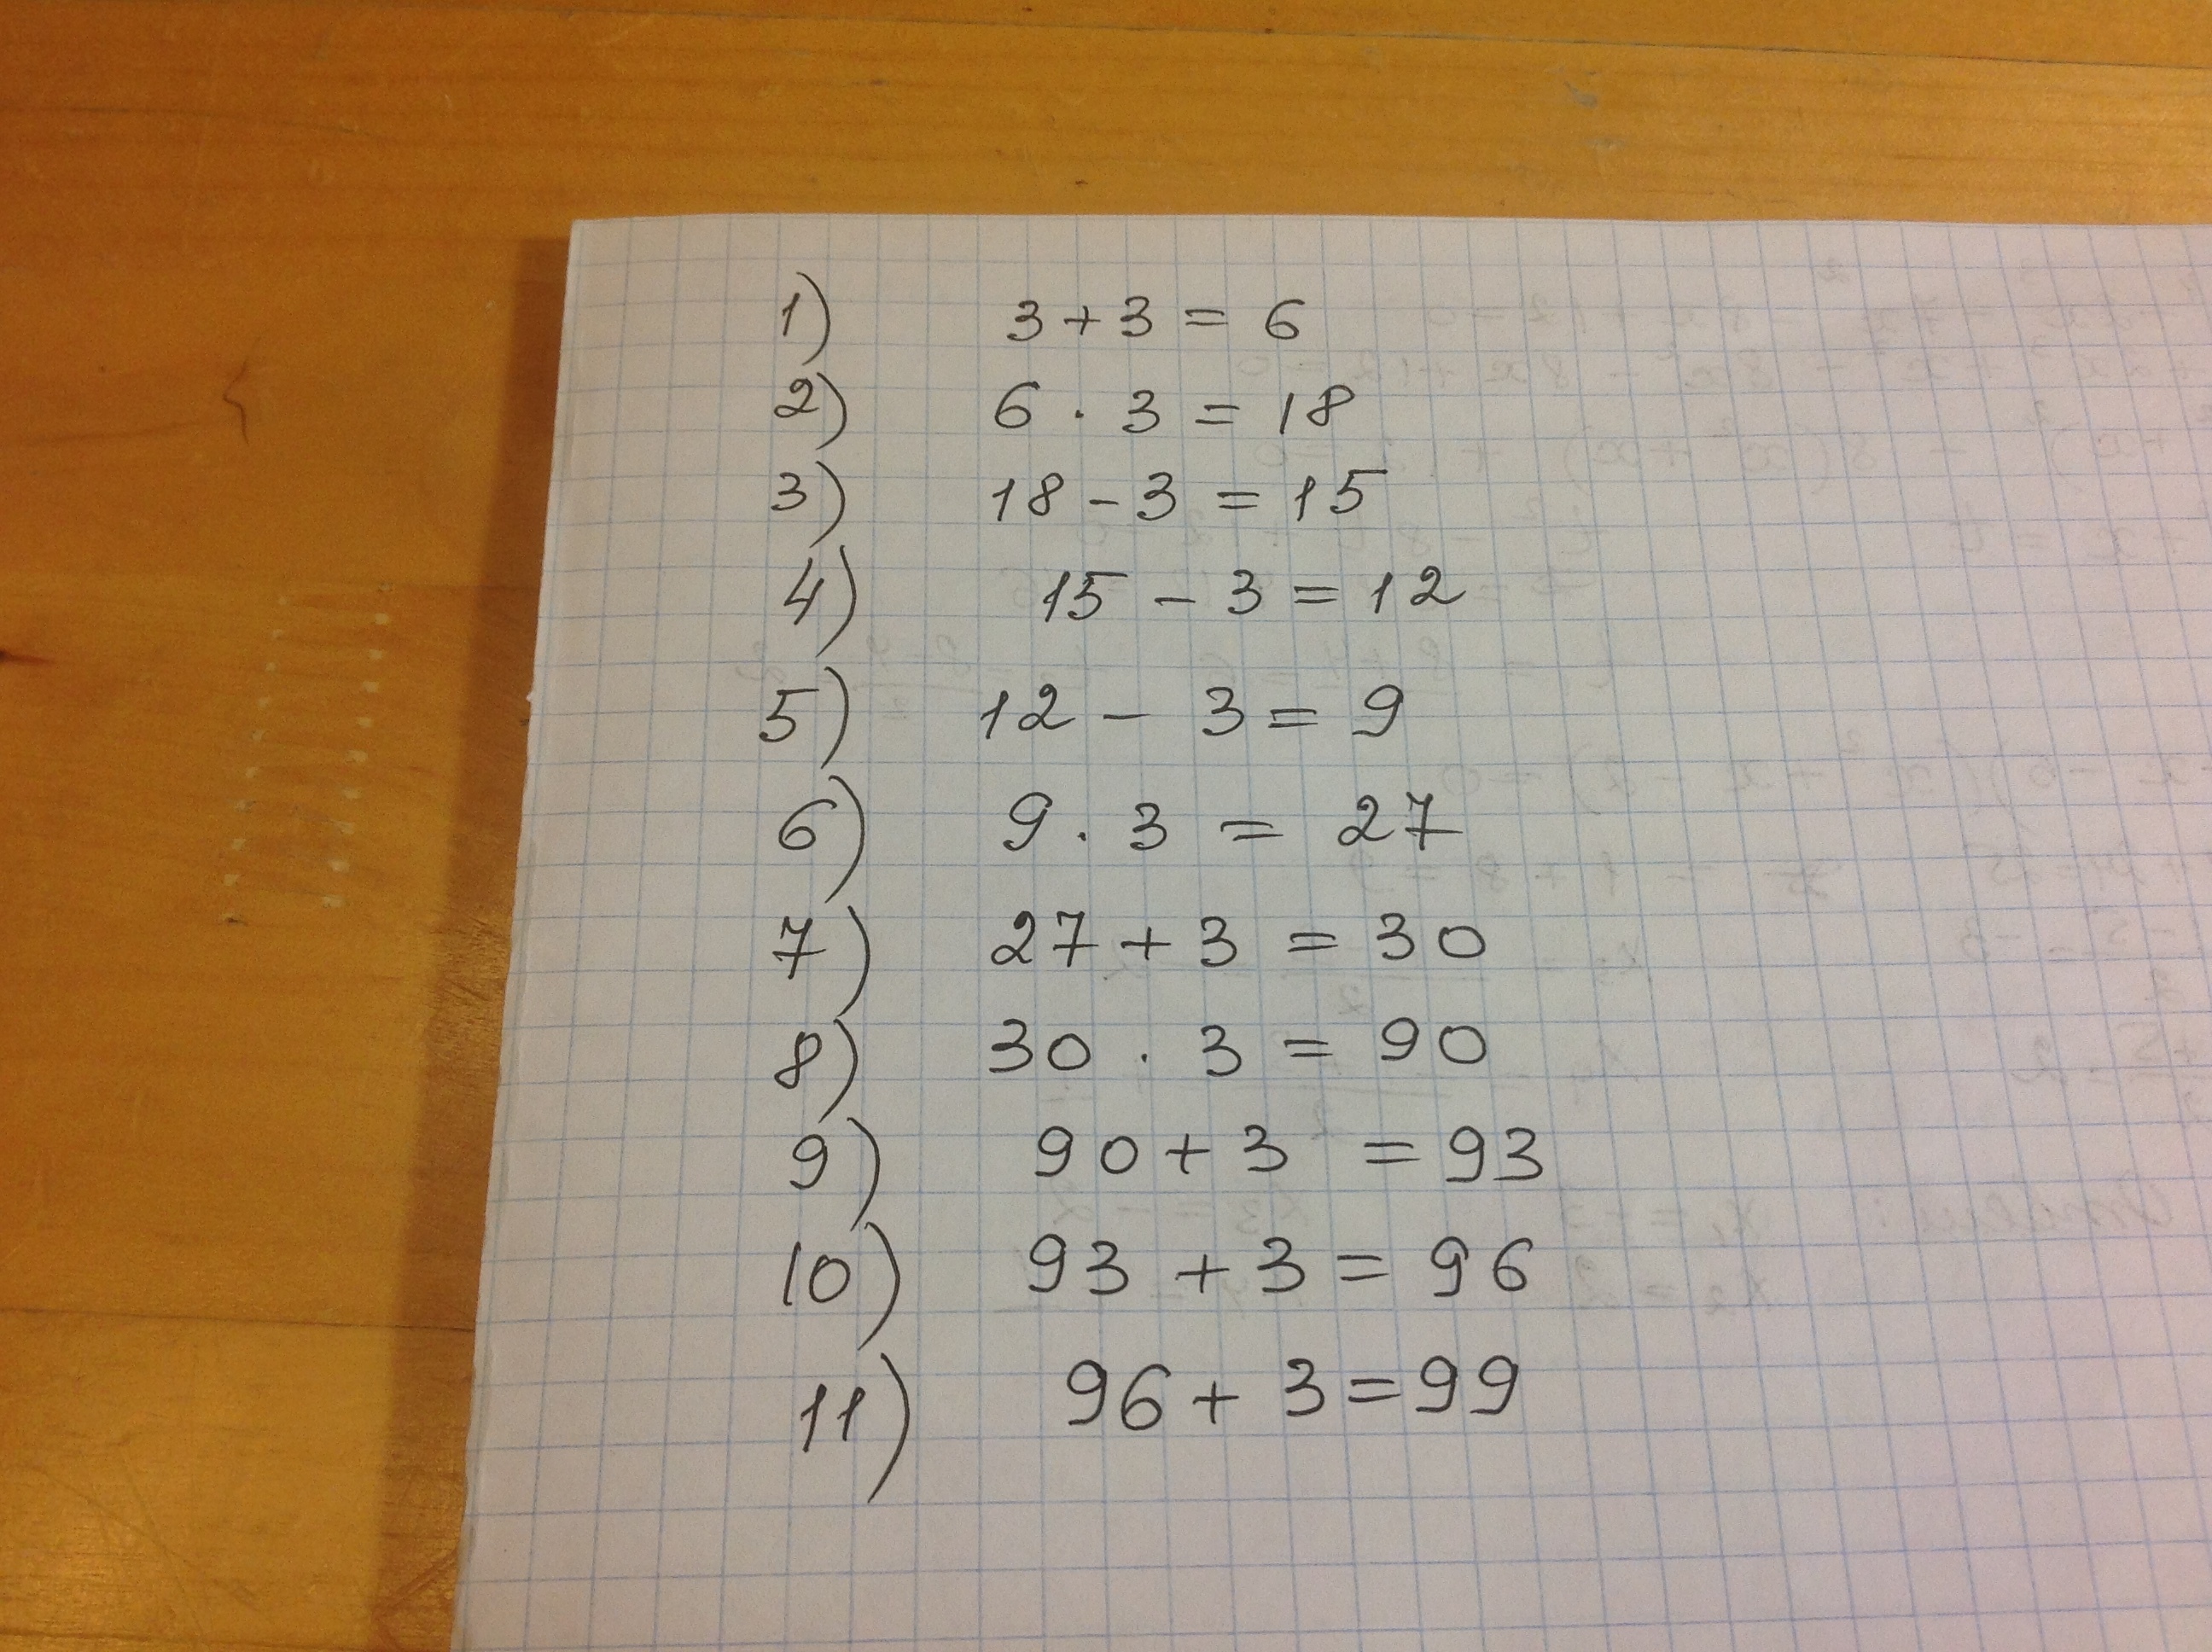 1) 3 + 3 = 6
2) 6 · 3 = 18
3) 18 - 3 = 15
4) 15 - 3 = 12
5) 12 - 3 = 9
6) 9 · 3 = 27
7) 27 + 3 = 30
8) 30 · 3 = 90
9) 90 + 3 = 93
10) 93 + 3 = 96
11) 96 + 3 = 99